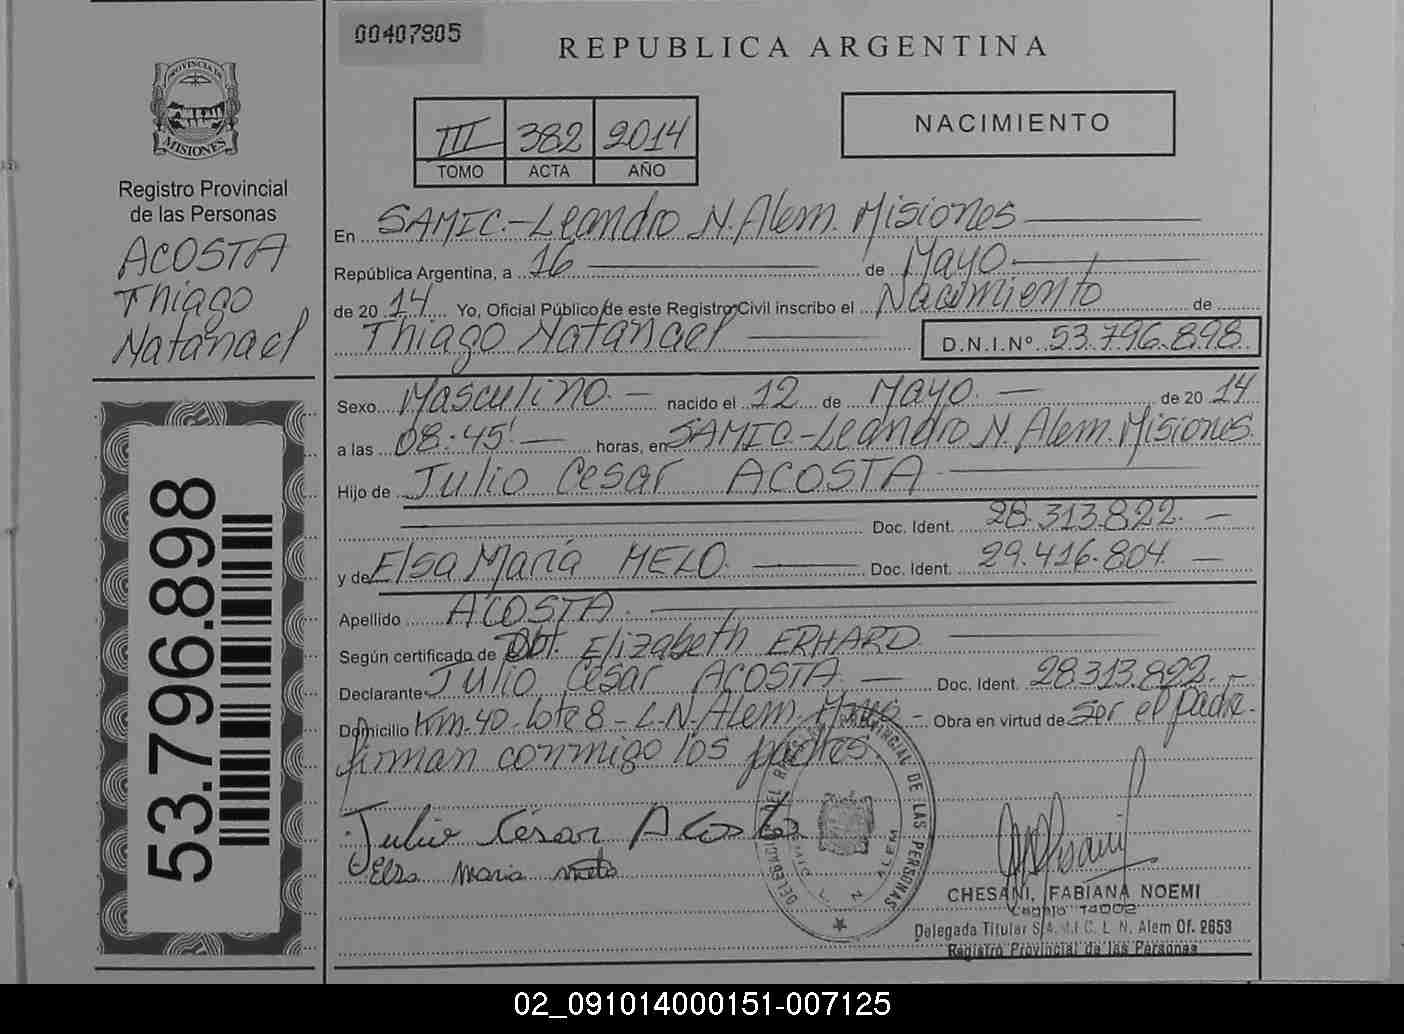 00407805
REPUBLICA ARGENTINA
PROVINCIA DE
MISIONES
Registro Provincial
de las Personas
ACOSTA
Thiago
Natanael
III 382 2014
TOMO ACTA AÑO
NACIMIENTO
En SAMIC.-Leandro N. Alem. Misiones
República Argentina, a 16 de Mayo
de 20 14 Yo, Oficial Público de este Registro Civil inscribo el Nacimiento de
Thiago Natanael D.N.I.Nº 53.796.898
Sexo Masculino.- nacido el 12 de Mayo.- de 20 14
a las 08:45' horas, en SAMIC.-Leandro N. Alem. Misiones.
Hijo de Julio Cesar ACOSTA
Doc. Ident. 28.313.822.-
y de Elsa María MELO. Doc. Ident. 29.416.804 -
Apellido ACOSTA.
Según certificado de Obt. Elizabeth ERHARD
Declarante Julio César ACOSTA.- Doc. Ident. 28.313.822.-
Domicilio Km. 40.-Lote 8 - L.N. Alem. - Obra en virtud de Ser el padre.-
firman conmigo los padres.
Julio César Acosta
Elsa Maria
DELEGACION DEL DE LAS PERSONAS
L. N. ALEM
CHESANI, FABIANA NOEMI
Legajo 14002
Delegada Titular S.A.M.I.C. L. N. Alem Of. 2653
Registro Provincial de las Personas
53.796.898
02_091014000151-007125